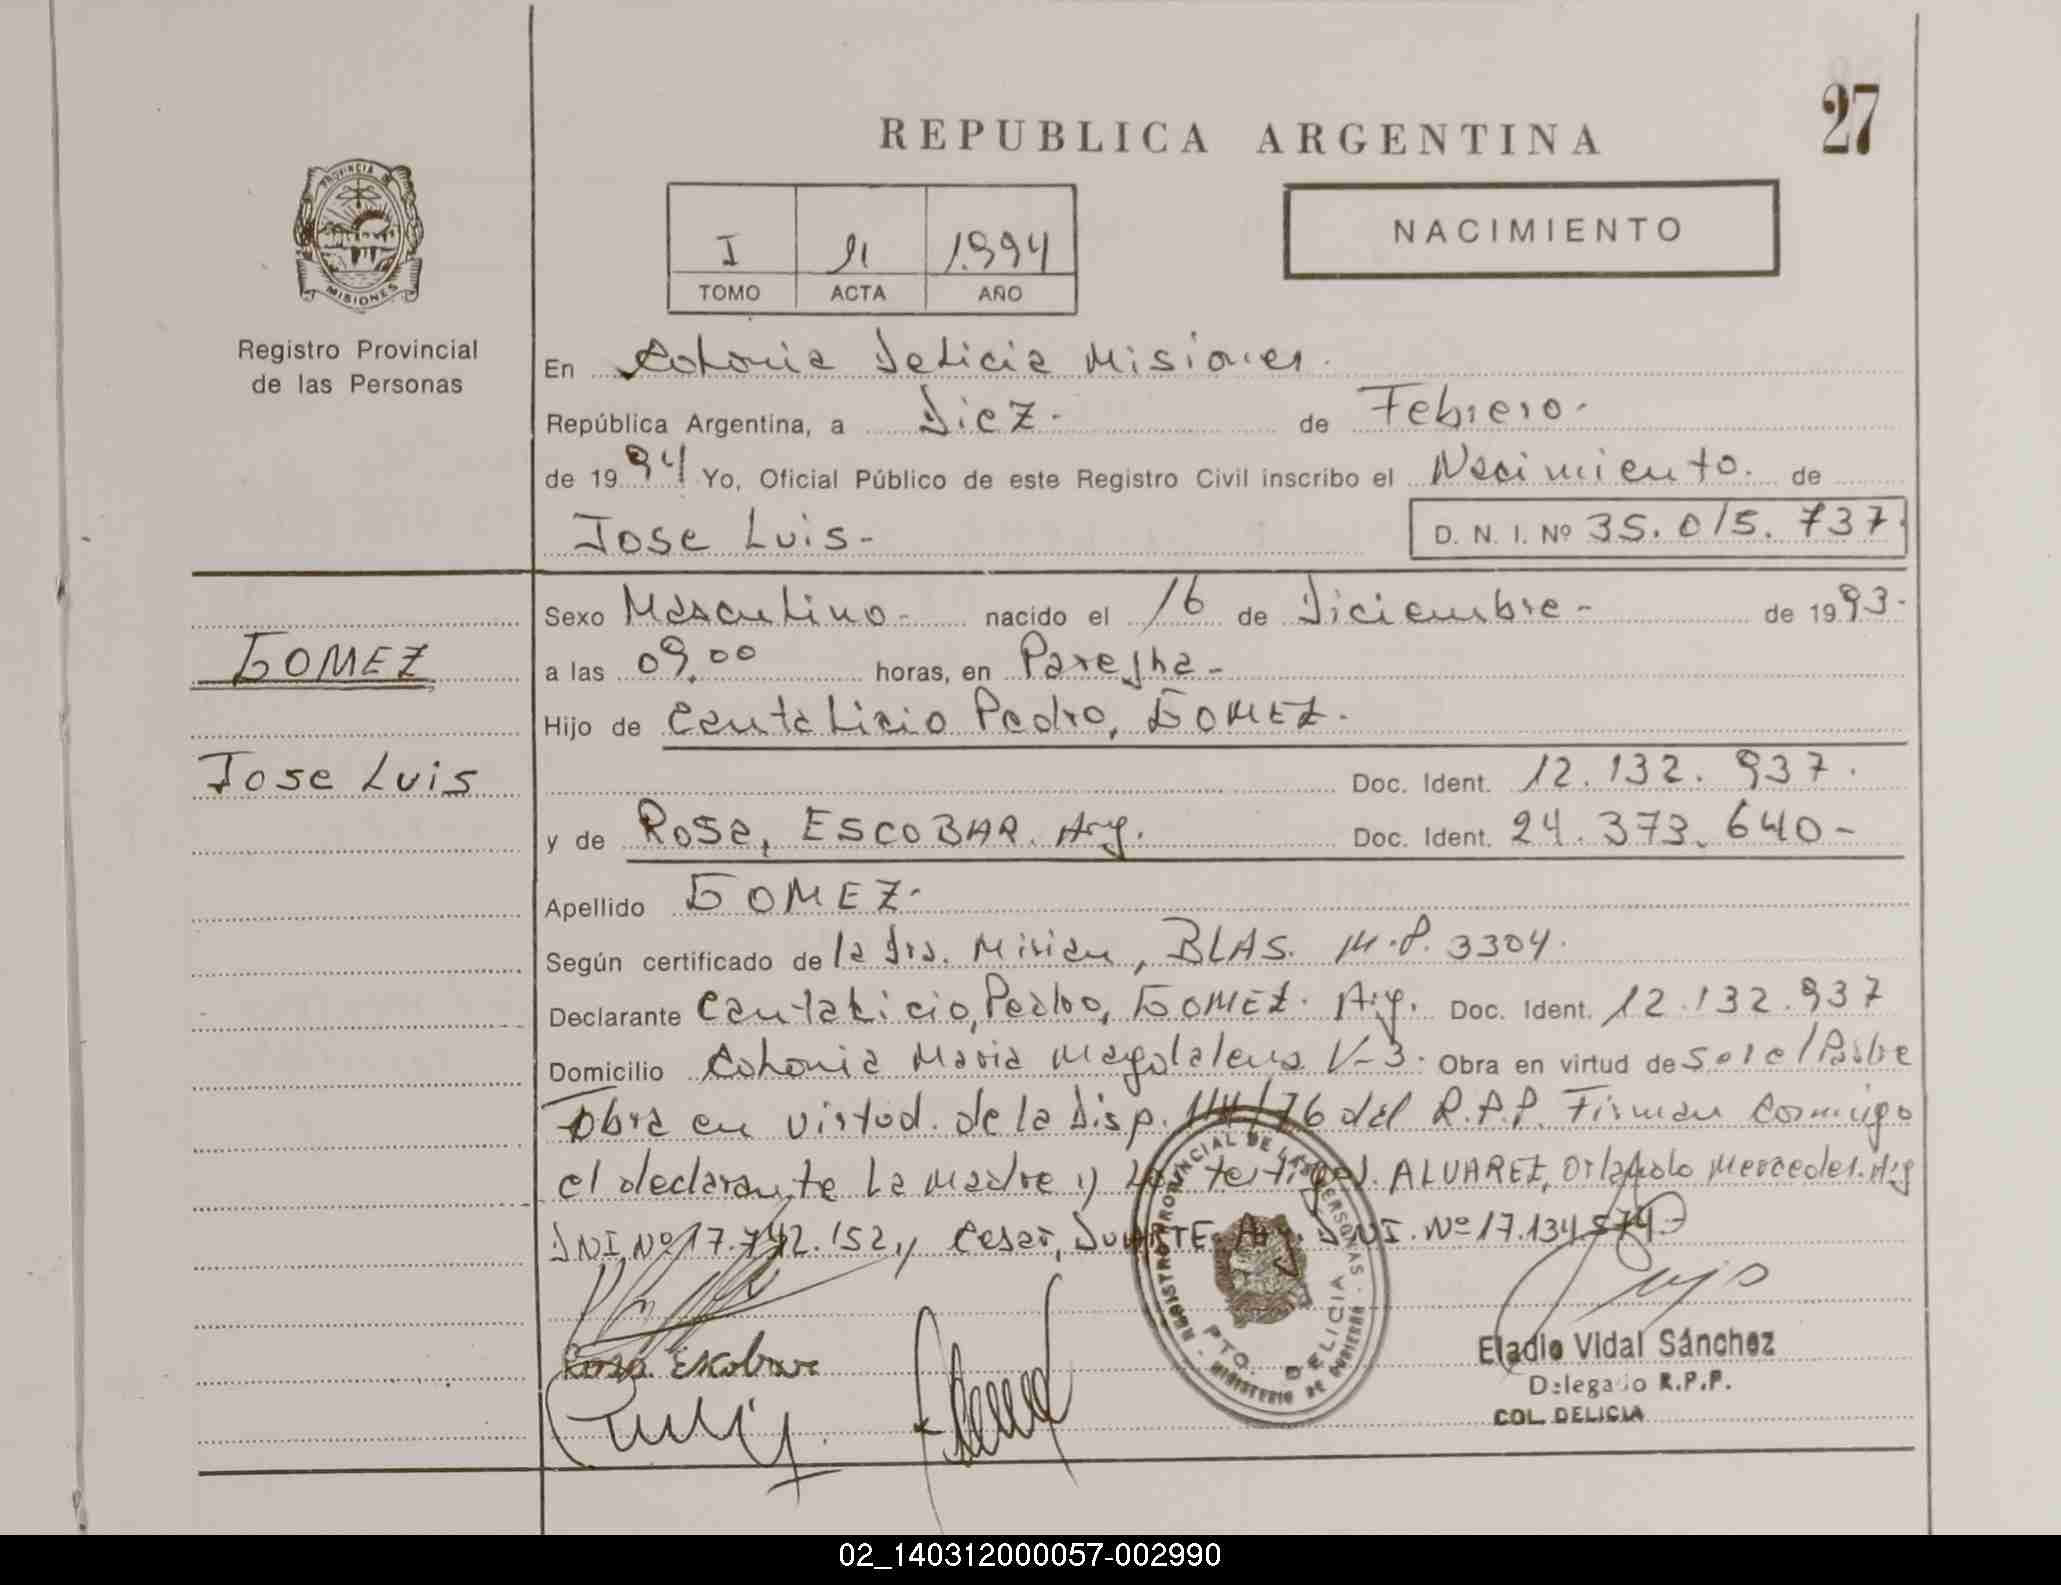 27
REPUBLICA ARGENTINA
NACIMIENTO
PROVINCIA DE
MISIONES
Registro Provincial
de las Personas
I 1.994
TOMO ACTA AÑO
En Colonia Delicia Misiones.
República Argentina, a Diez.- de Febrero.-
de 1994 Yo, Oficial Público de este Registro Civil inscribo el Nacimiento. de
Jose Luis.- D. N. I. Nº 35.015.737.
Sexo Masculino.- nacido el 16 de Diciembre.- de 1993.-
GOMEZ
a las 09.00 horas, en
Hijo de Cantalicio Pedro, GOMEZ.-
Jose Luis
Doc. Ident. 12.132.937.
y de Rosa, ESCOBAR. Arg. Doc. Ident. 24.373.640-
Apellido GOMEZ.-
Según certificado de la Dra. Mirian, BLAS. M.P. 3304.
Declarante Cantalicio, Pedro, GOMEZ. Arg. Doc. Ident. 12.132.937
Domicilio Colonia Maria Magdalena V-3. Obra en virtud de ser el Padre
Obra en virtud. de la Disp. /76 del R.P.P. Firman Conmigo
el declarante La madre y Los testigos. ALVAREZ, Orlando Mercedes. Arg
DNI. Nº 17.742.152, y Cesar, DUARTE. Arg. DNI. Nº 17.134.574.-
Rosa Escobar
REGISTRO PROVINCIAL DE LAS PERSONAS - MINISTERIO DE GOBIERNO
PTO. DELICIA
Eladio Vidal Sánchez
Delegado R.P.P.
COL. DELICIA
02_140312000057-002990